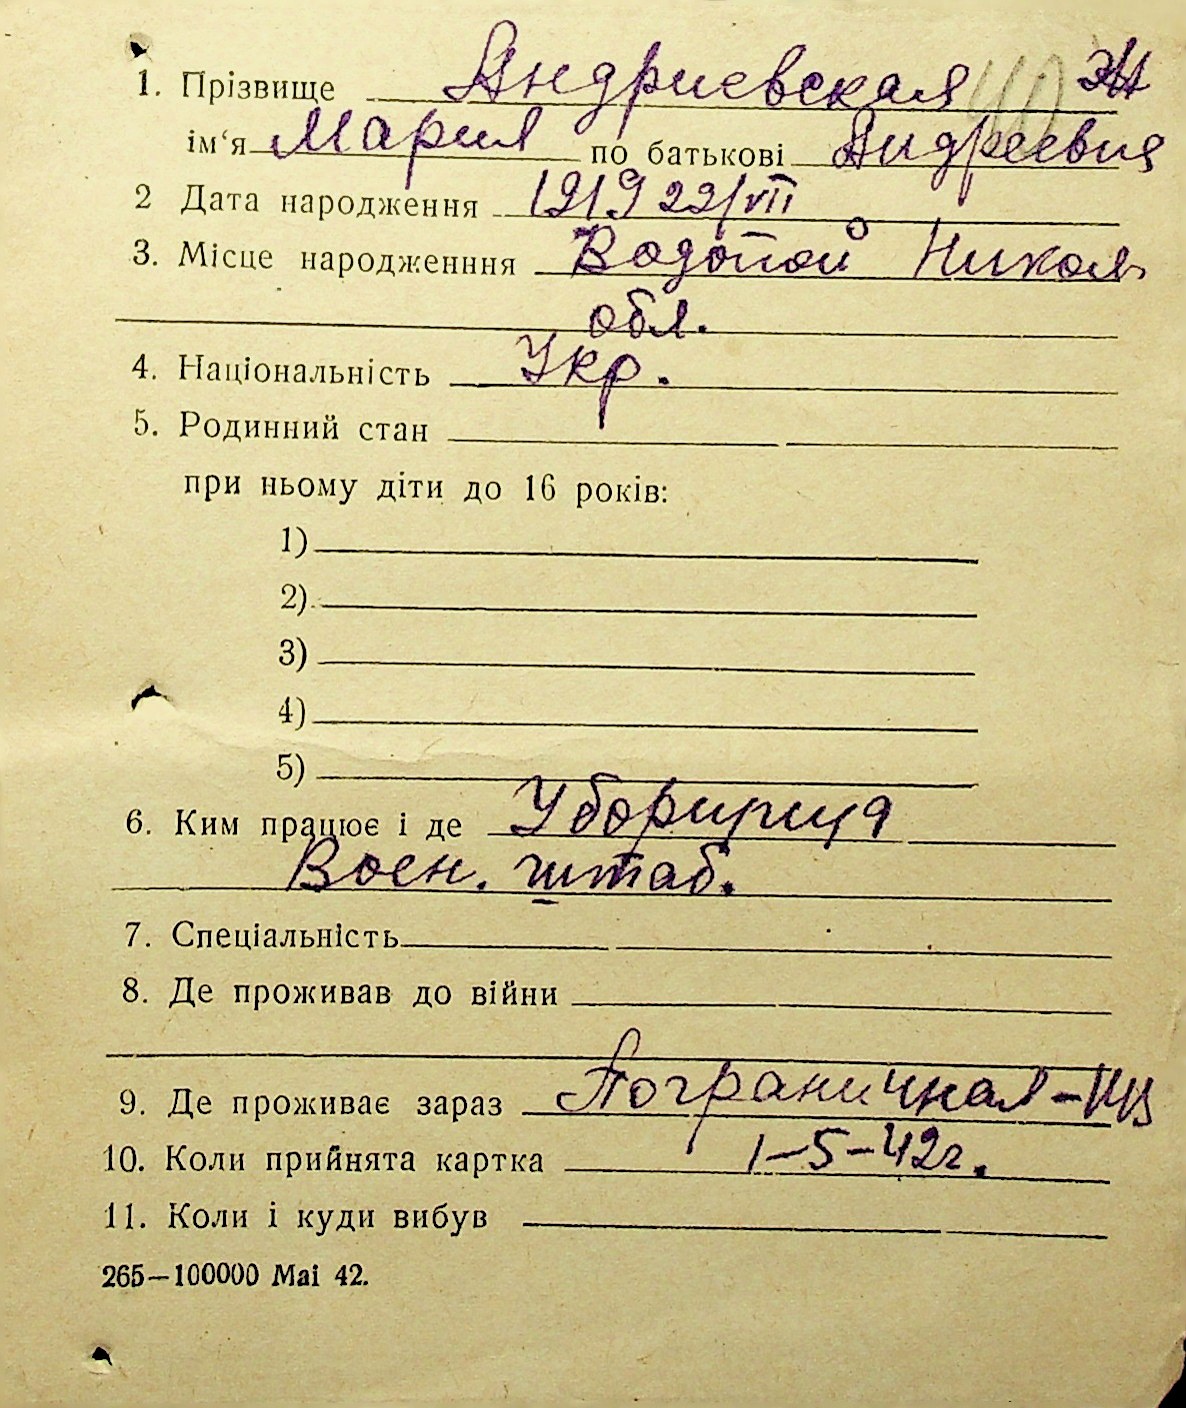 1. Прізвище Андриевская Ж
ім‘я Мария по батькові Андреевна
2 Дата народження 1919 22/VII
3. Місце народженння Водопой Никол.
обл.
4. Національність Укр.
5. Родинний стан
при ньому діти до 16 років:
1)
2)
3)
4)
5)
6. Ким працює і де Уборщица
Воен. штаб.
7. Спеціальність
8. Де проживав до війни
9. Де проживає зараз Пограничная-
10. Коли прийнята картка 1-5-42г.
11. Коли і куди вибув
265—100000 Mai 42.